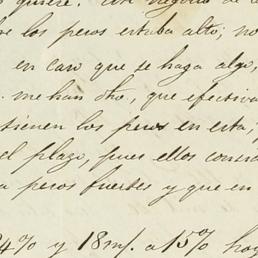 quiere. Un negocio de
los pesos estaba alto; no
en caso que se haga algo,
me han dho, que efectiva
tienen los pesos en esta;
el plazo, pues ellos
a pesos fuertes y que en
4% y 18 m/. a 15%